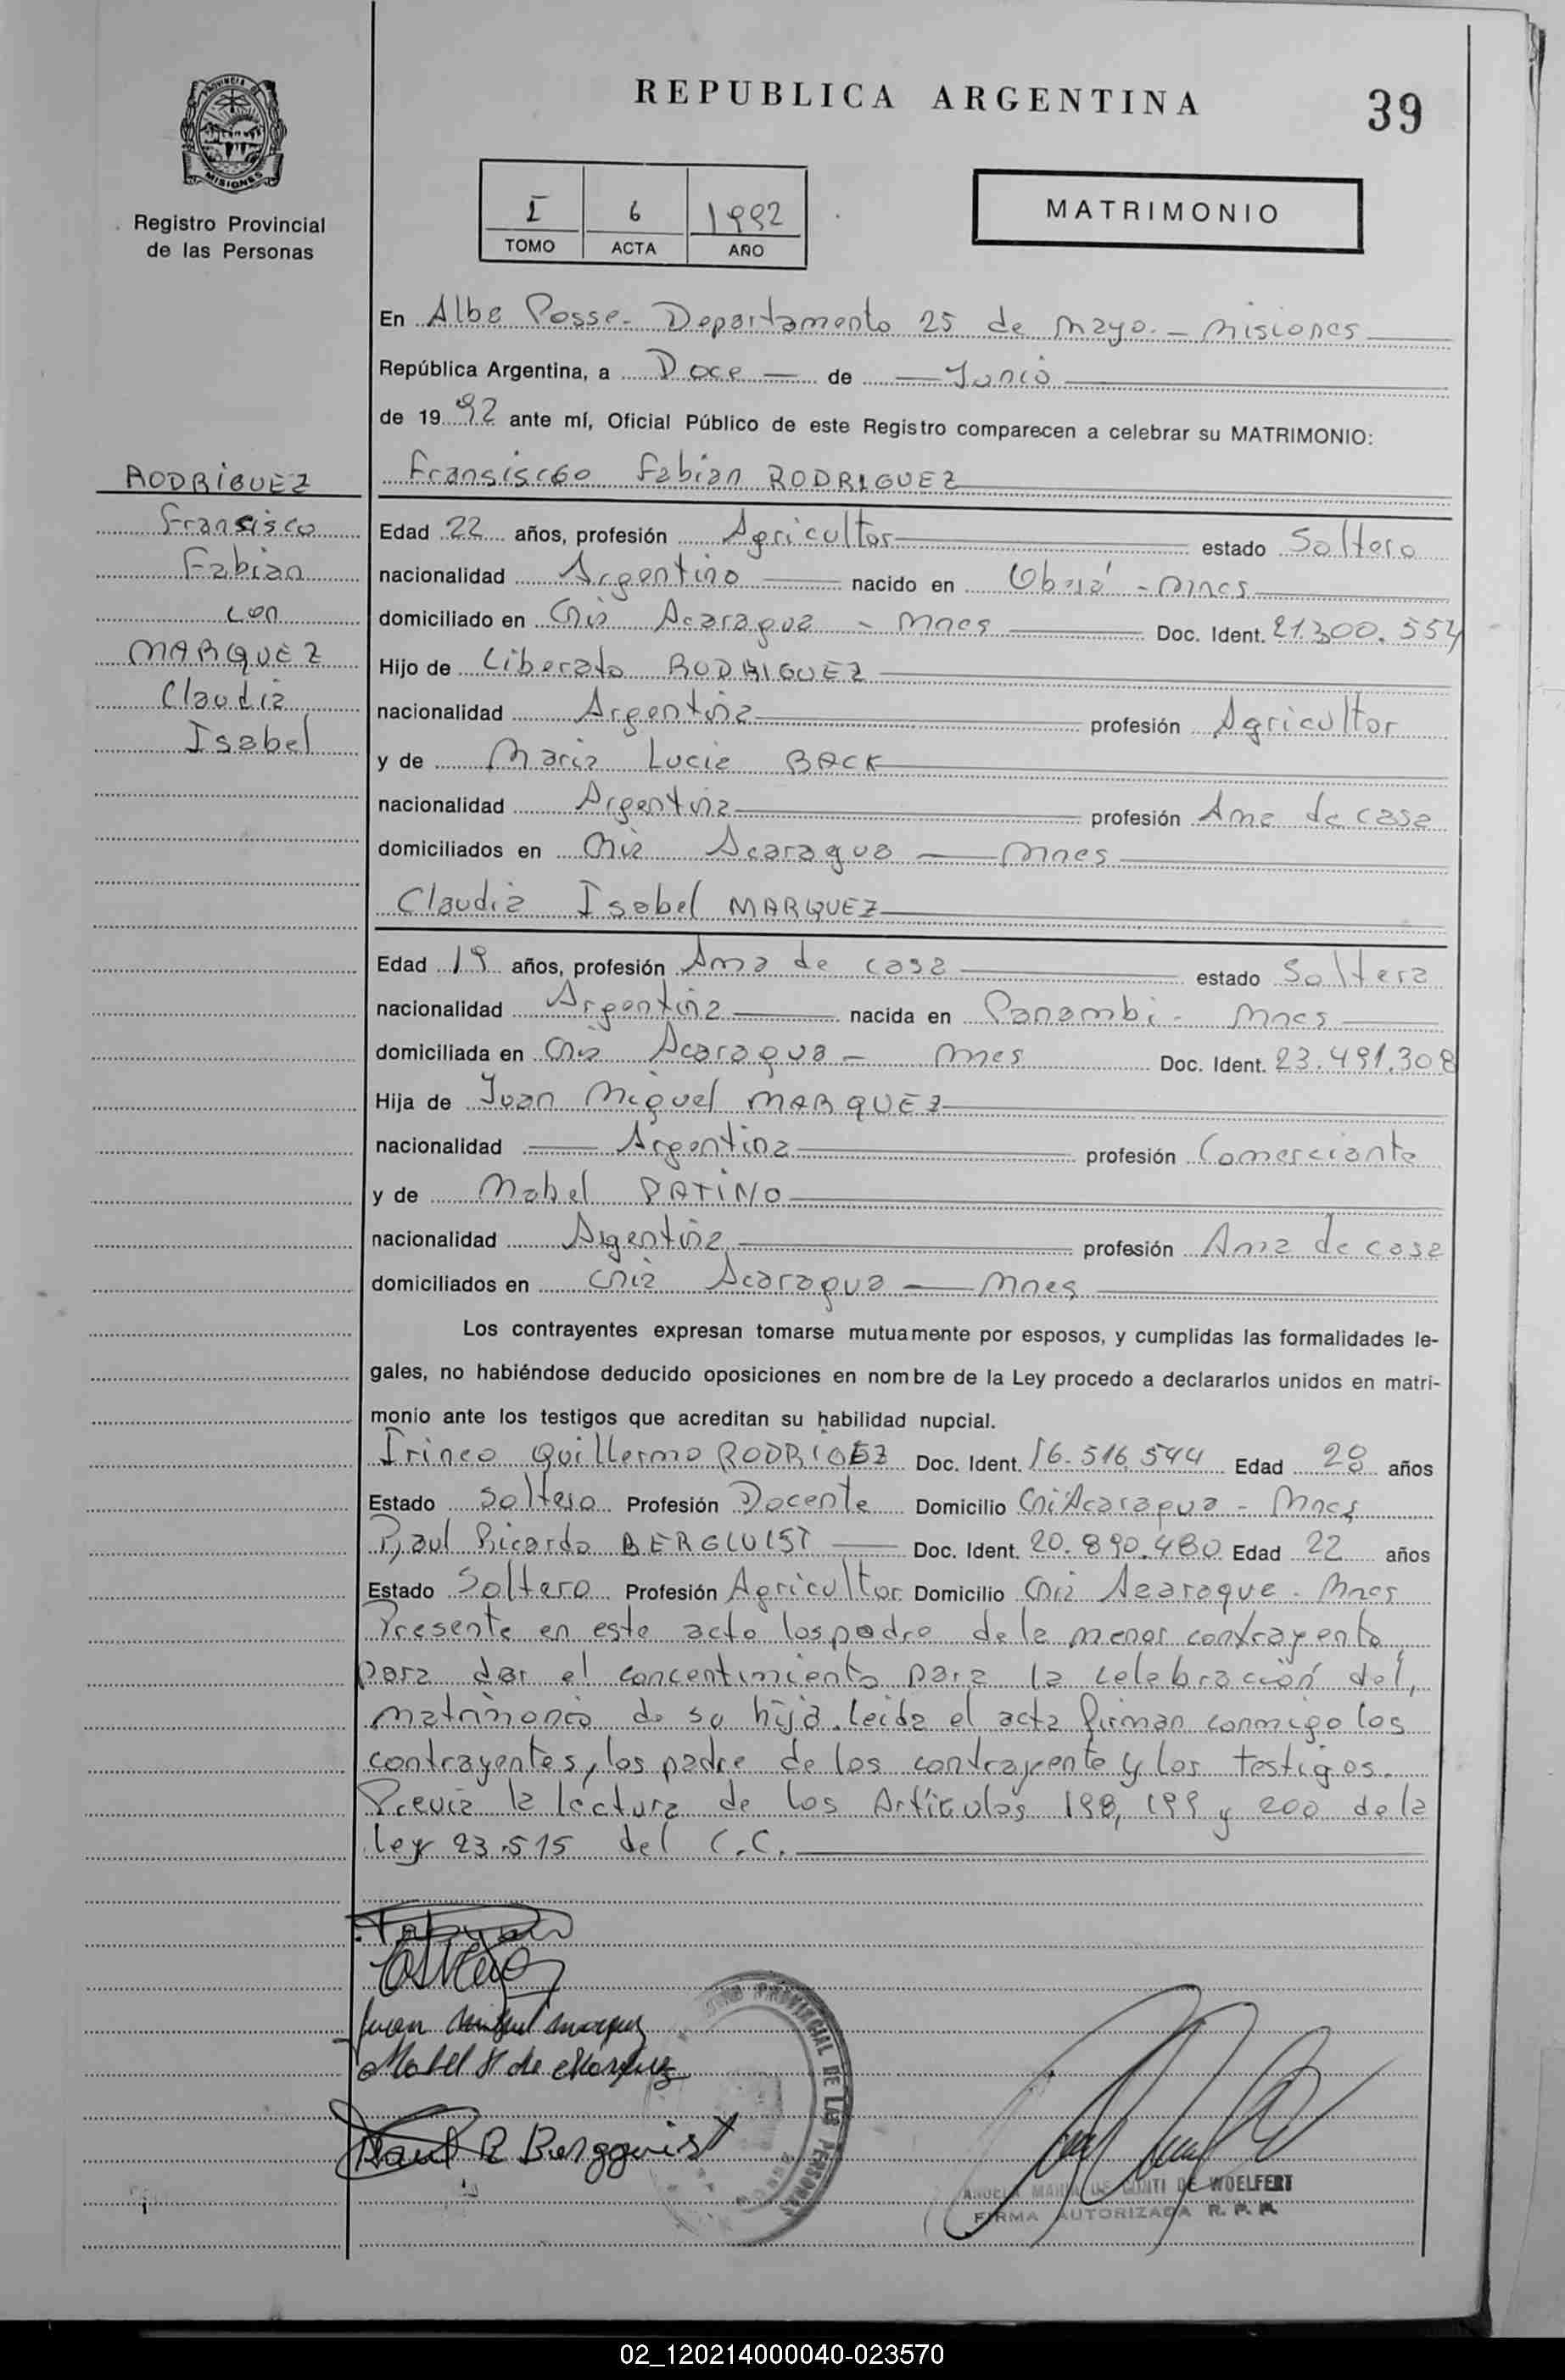 PROVINCIA DE
MISIONES
Registro Provincial
de las Personas
REPUBLICA ARGENTINA
39
I 6 1992
TOMO ACTA AÑO
MATRIMONIO
RODRIGUEZ
Fransisco
Fabian
con
MARQUEZ
Claudia
Isabel
En Alba Posse- Departamento 25 de Mayo. - Misiones
República Argentina, a Doce de Junio
de 1992 ante mí, Oficial Público de este Registro comparecen a celebrar su MATRIMONIO:
Fabian RODRIGUEZ
Edad 22 años, profesión Agricultor estado Soltero
nacionalidad Argentino nacido en Oberá - Mnes
domiciliado en Acaragua - Mnes Doc. Ident. 21.300.554
Hijo de Liberato RODRIGUEZ
nacionalidad Argentina profesión Agricultor
y de Maria Lucia BACK
nacionalidad Argentina profesión Ama de casa
domiciliados en Acaragua Mnes
Claudia Isabel MARQUEZ
Edad 19 años, profesión Ama de casa estado Soltera
nacionalidad Argentina nacida en Panambi - Mnes
domiciliada en Acaragua - Mnes Doc. Ident. 23.491.308
Hija de Juan Miguel MARQUEZ
nacionalidad Argentina profesión Comerciante
y de Mabel PATIÑO
nacionalidad Argentina profesión Ama de casa
domiciliados en Acaragua Mnes
Los contrayentes expresan tomarse mutuamente por esposos, y cumplidas las formalidades le-
gales, no habiéndose deducido oposiciones en nombre de la Ley procedo a declararlos unidos en matri-
monio ante los testigos que acreditan su habilidad nupcial.
Irineo Guillermo Doc. Ident. 16.516.544 Edad 28 años
Estado Soltero Profesión Docente Domicilio Acaragua - Mnes
Raul Ricardo Doc. Ident. 20.890.480 Edad 22 años
Estado Soltero Profesión Agricultor Domicilio Mnes
Presente en este acto los padre de la menor contrayente,
para dar el concentimiento para la celebración del,
matrimonio de su hija. leida el acta firman conmigo los
contrayentes, los padre de los contrayente y los testigos.
Previa la lectura de los Artículos 198, 199 y 200 de la
ley 23.515 del C.C.
Juan Miguel Marquez
Mabel de Marquez
Raul R Bergquist
PROVINCIAL DE LAS PERSONAS
ANGELA MARIA DE CONTI DE WOELFERT
FIRMA AUTORIZADA R. P. P.
02_120214000040-023570